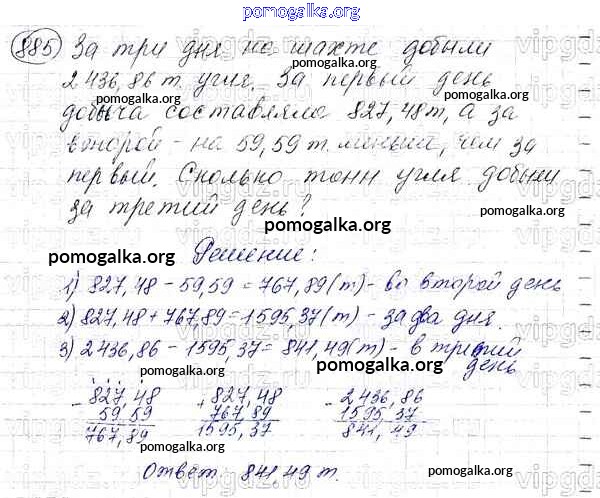 pomogalka.org
885) За три дня на шахте добыли
pomogalka.org
2 436,86 т. угля. За первый день
pomogalka.org pomogalka.org
добыча составляла 827,48 т, а за
pomogalka.org
второй - на 59,59 т. меньше, чем за
pomogalka.org
первый. Сколько тонн угля добыли
pomogalka.org
за третий день?
pomogalka.org
pomogalka.org Решение: pomogalka.org
1) 827,48 - 59,59 = 767,89 (т) - во второй день
pomogalka.org
2) 827,48 + 767,89 = 1595,37 (т) - за два дня.
3) 2436,86 - 1595,37 = 841,49 (т) - в третий
pomogalka.org день
- 827,48 + 827,48 - 2436,86
59 59 767,89 1595,37
767,89 1595,37 841,49
pomogalka.org pomogalka.org
Ответ: 841,49 т.
pomogalka.org pomogalka.org
vipgdz.ru